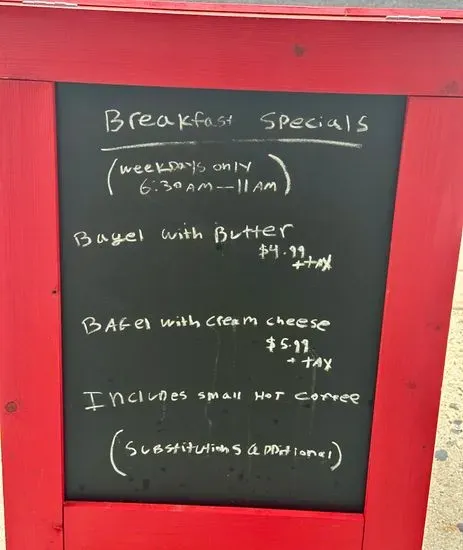 Breakfast Specials
(Weekdays only
6:30 AM - 11 AM)
Bagel with Butter
$4.99
+ TAX
BAGEl with cream cheese
$5.99
+ TAX
Includes small Hot Coffee
(Substitutions Additional)